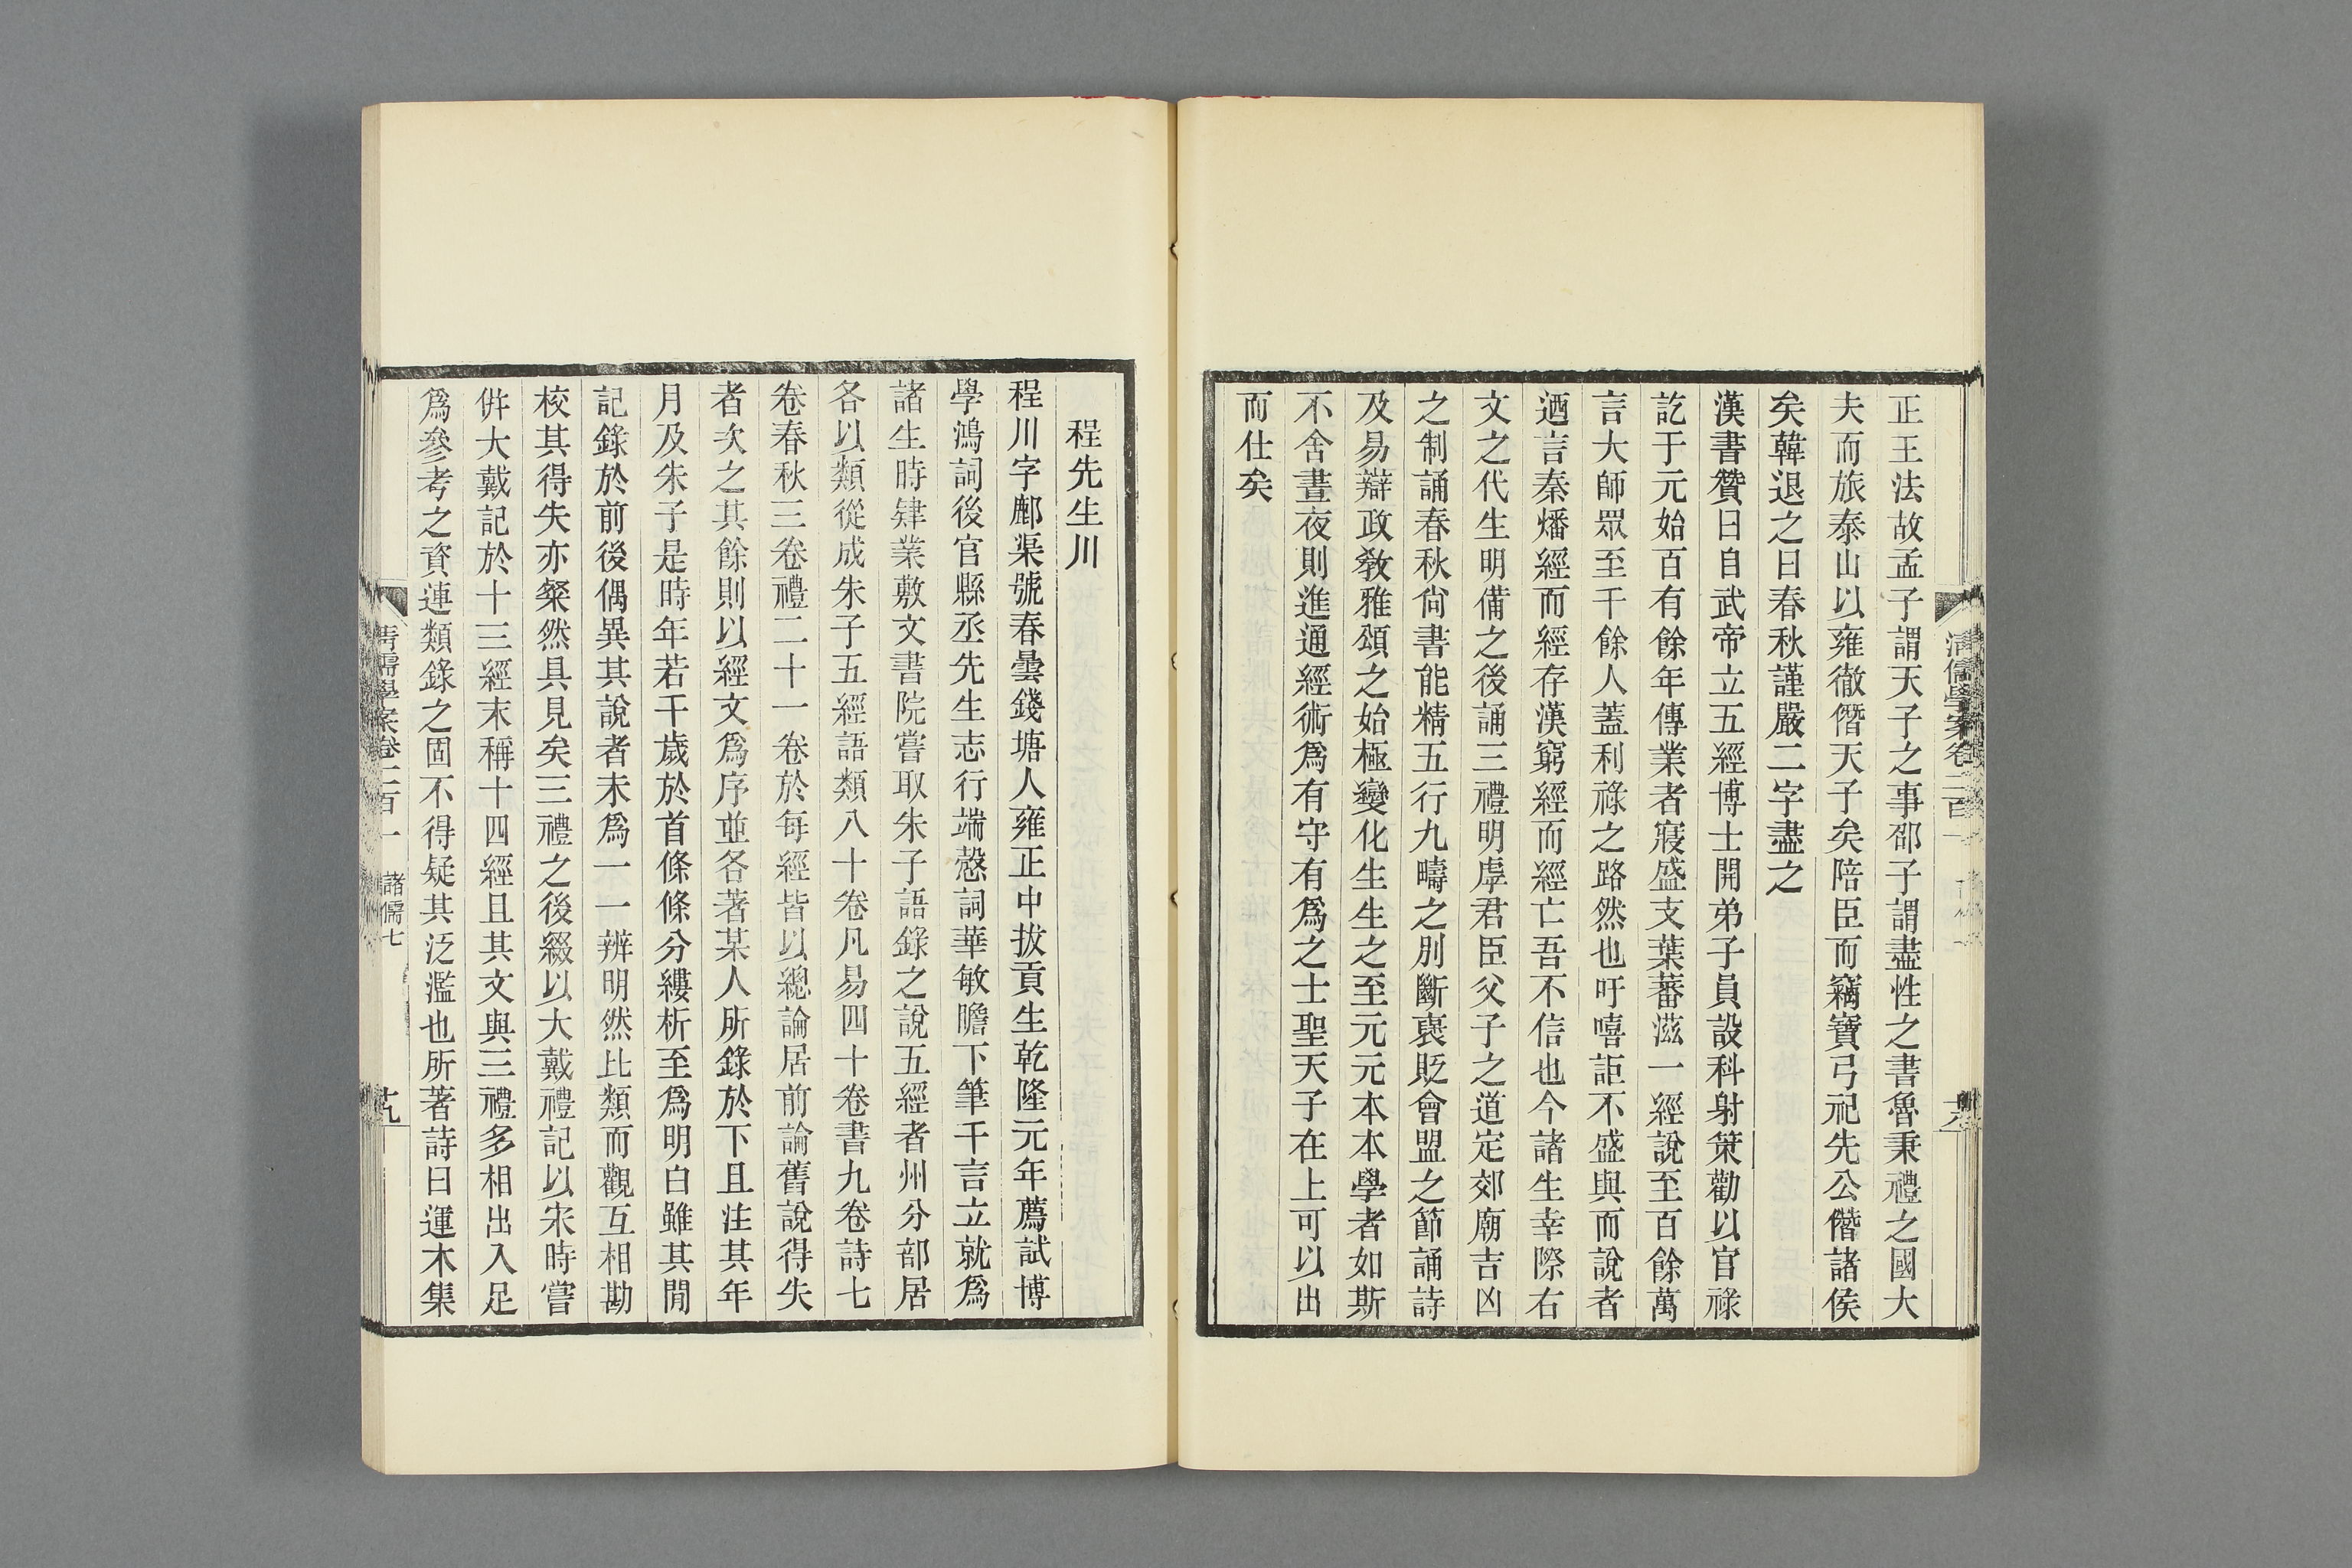 正王法故孟子謂天子之事邵子謂盡性之書魯秉禮之國大
夫而旅泰山以雍徹僭天子矣陪臣而竊寶弓祀先公僭諸侯
矣韓退之曰春秋謹嚴二字盡之
漢書贊曰自武帝立五經博士開弟子員設科射策勸以官祿
訖于元始百有餘年傳業者寖盛支葉蕃滋一經說至百餘萬
言大師眾至千餘人蓋利祿之路然也吁嘻詎不盛與而說者
迺言秦燔經而經存漢窮經而經亡吾不信也今諸生幸際右
文之代生明備之後誦三禮明虖君臣父子之道定郊廟吉凶
之制誦春秋尙書能精五行九疇之別斷襃貶會盟之節誦詩
及易辯政敎雅頌之始極變化生生之至元元本本學者如斯
不舍晝夜則進通經術爲有守有爲之士聖天子在上可以出
而仕矣
清儒學案卷二百一
十八
程先生川
程川字郙渠號春曇錢塘人雍正中拔貢生乾隆元年薦試博
學鴻詞後官縣丞先生志行端慤詞華敏瞻下筆千言立就爲
諸生時肄業敷文書院嘗取朱子語錄之說五經者州分部居
各以類從成朱子五經語類八十卷凡易四十卷書九卷詩七
卷春秋三卷禮二十一卷於每經皆以總論居前論舊說得失
者次之其餘則以經文爲序並各著某人所錄於下且注其年
月及朱子是時年若干歲於首條條分縷析至爲明白雖其閒
記錄於前後偶異其說者未爲一一辨明然比類而觀互相勘
校其得失亦粲然具見矣三禮之後綴以大戴禮記以宋時嘗
倂大戴記於十三經末稱十四經且其文與三禮多相出入足
爲參考之資連類錄之固不得疑其泛濫也所著詩曰運木集
清儒學案卷二百一
諸儒七
十九